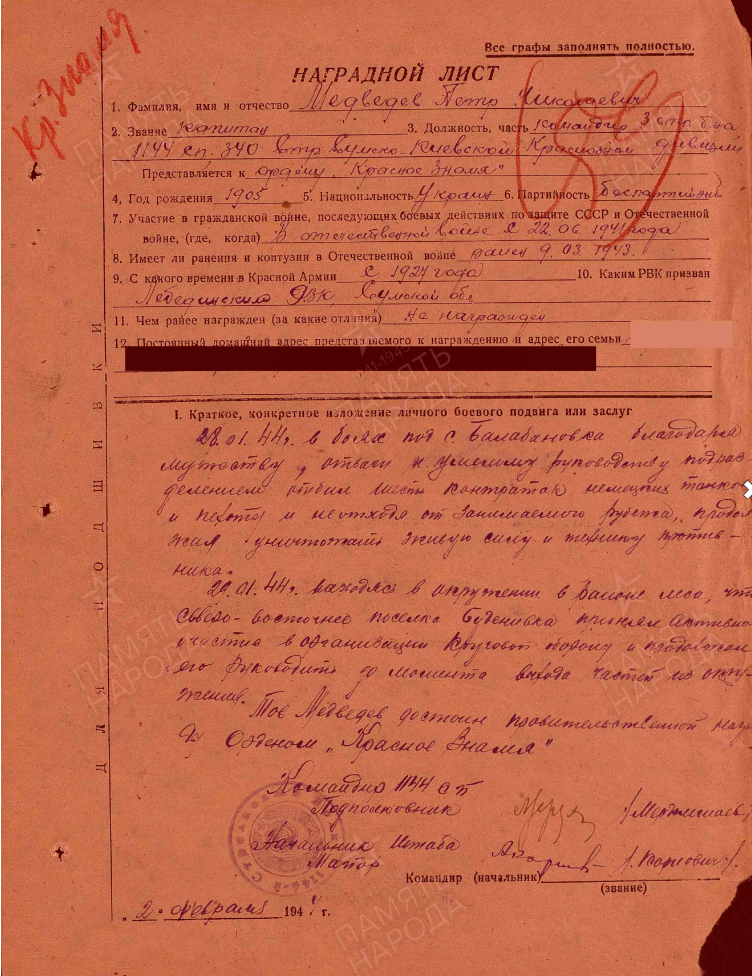 Кр. Знамя.
Все графы заполнять полностью.
НАГРАДНОЙ ЛИСТ
1. Фамилия, имя и отчество Медведев Петр Николаевич
2. Звание капитан 3. Должность, часть командир 3 стр. б-на
1144 сп. 340 стр Сумско-Киевской Краснозн дивизии
Представляется к ордену „Красное Знамя"
4. Год рождения 1905 5. Национальность Украин 6. Партийность беспартийный
7. Участие в гражданской войне, последующих боевых действиях по защите СССР и Отечественной
войне, (где, когда) В отечественной войне с 22.06.1941 года
8. Имеет ли ранения и контузии в Отечественной войне ранен 9.03.1943.
9. С какого времени в Красной Армии с 1927 года 10. Каким РВК призван
Лебединским РВК, Сумской обл
11. Чем ранее награжден (за какие отличия) не награжден
12. Постоянный домашний адрес представляемого к награждению и адрес его семьи
I. Краткое, конкретное изложение личного боевого подвига или заслуг
28.01.44г. в боях под с. Балабановка благодаря
мужеству, отваги и умелому руководству подраз-
делением отбил шесть контратак немецких танков
и пехоты и не отходя от занимаемого рубежа, продол
жал уничтожать живую силу и технику против-
ника.
29.01.44г. находясь в окружении в районе леса, что
северо-восточнее поселка принял активно
участие в организации круговой обороны и продолжал
его руководить до момента выхода частей из окру-
жения.
Тов Медведев достоин правительственной нагр
ды Орденом „Красное Знамя"
Командир 1144 СП
Подполковник
Начальник Штаба
Майор
Командир (начальник)
(звание)
„2" февраля 1944 г.
ДЛЯ ПОДШИВКИ
ПАМЯТЬ
НАРОДА